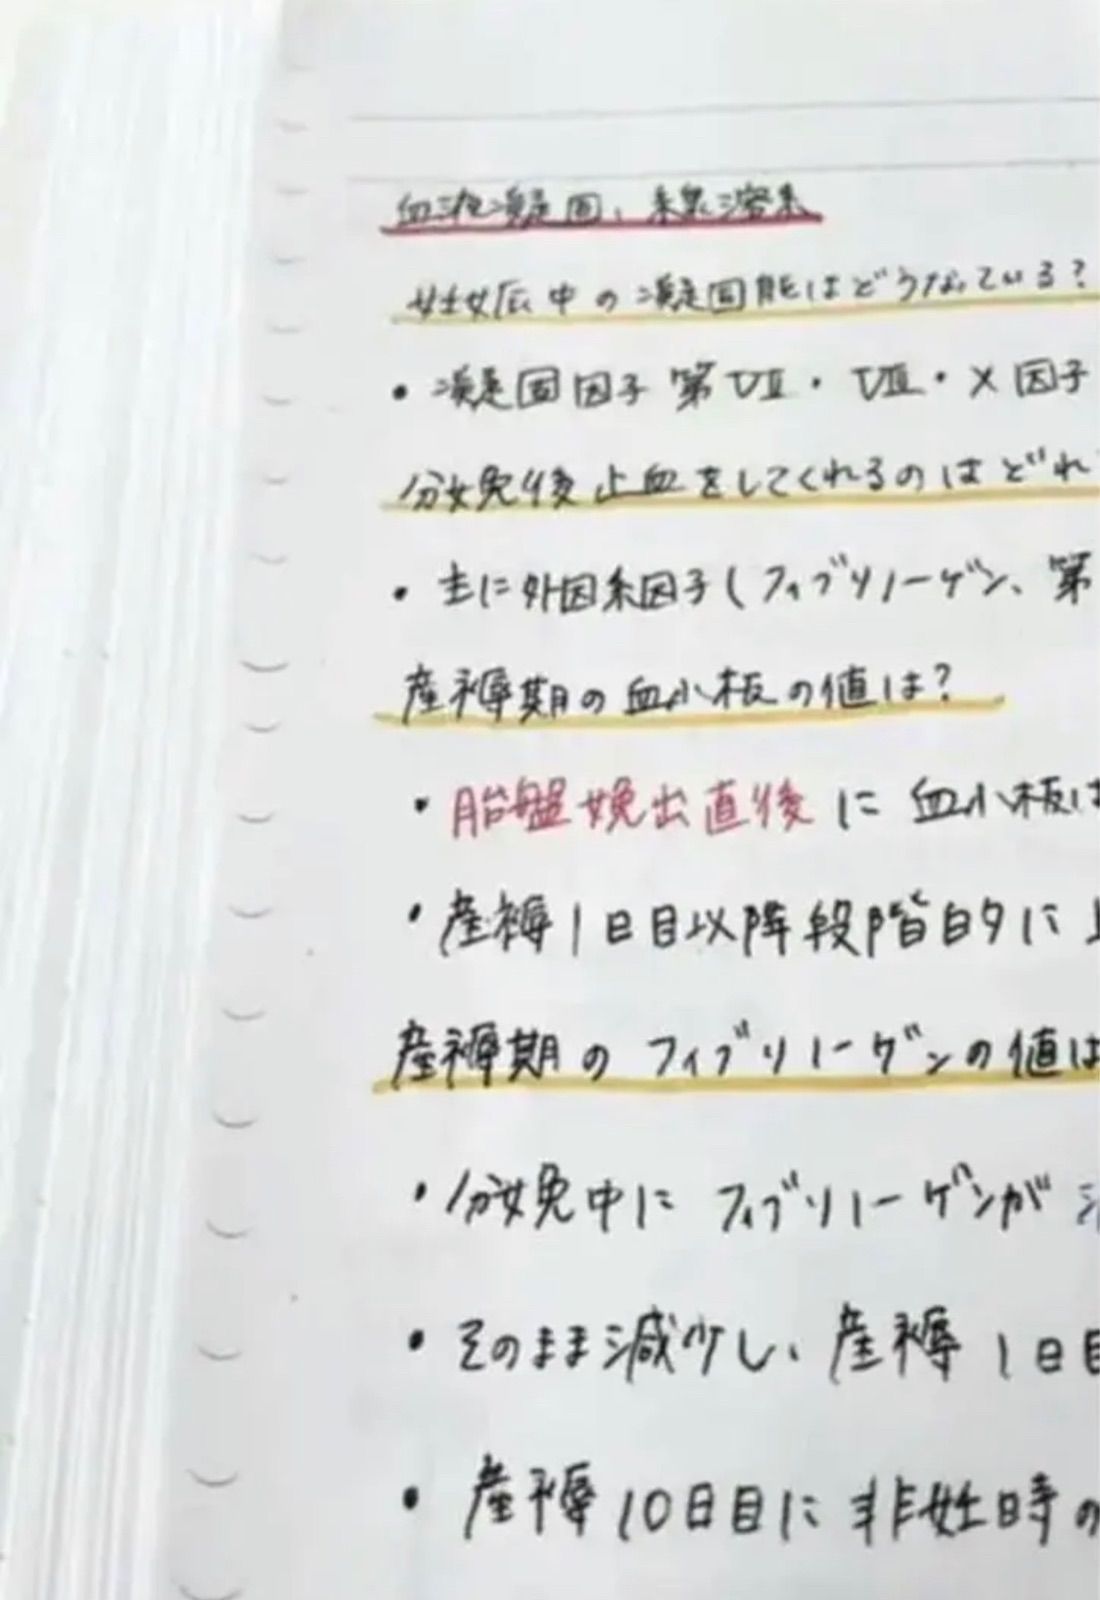 血液凝固、線溶系
妊娠中の凝固能はどうなっている?
・凝固因子 第Ⅶ・Ⅷ・X因子
分娩後止血をしてくれるのはどれ
・主に外因系因子(フィブリノーゲン、第
産褥期の血小板の値は?
・胎盤娩出直後に血小板は
・産褥1日目以降段階的に
産褥期のフィブリノーゲンの値は
・分娩中にフィブリノーゲンが
・そのまま減少し、産褥1日目
・産褥10日目に非妊時の